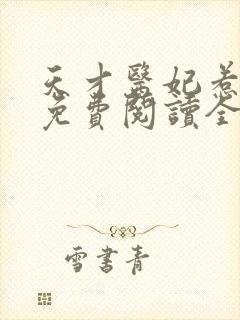 天才醫妃惹
免費閱讀全
雪書青